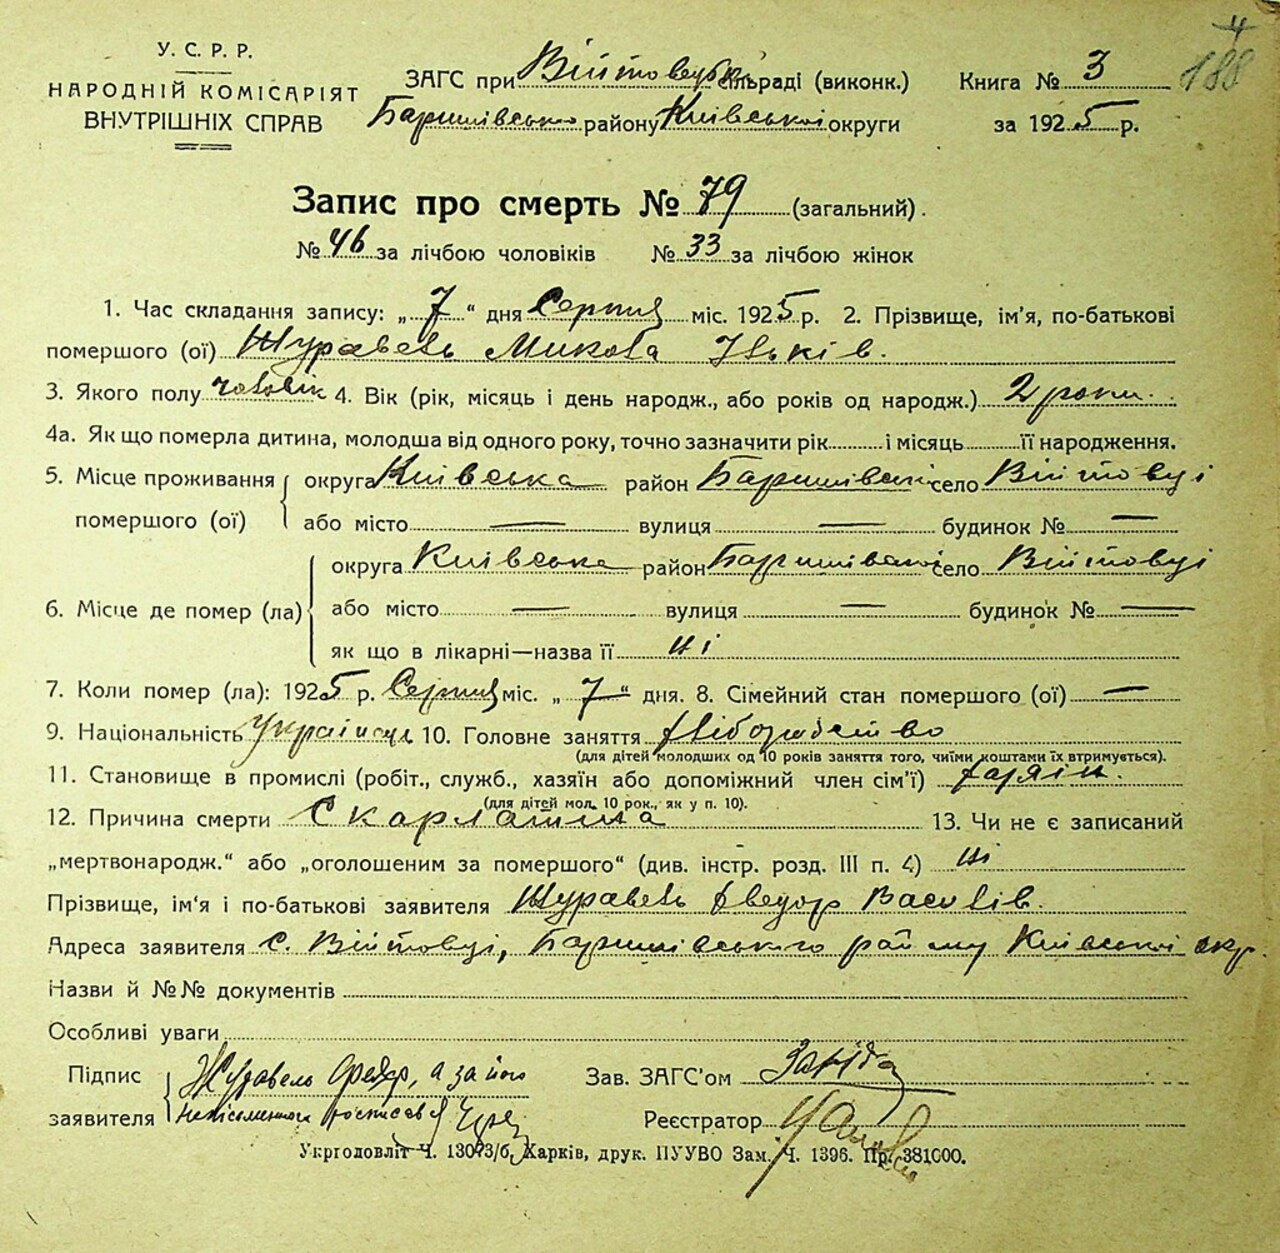 4
188
У. С. Р. Р.
НАРОДНІЙ КОМІСАРІЯТ
ВНУТРІШНІХ СПРАВ
ЗАГС при Війтовецькі сільраді (виконк.)
Баришівсько району Київської округи
Книга № 3
за 1925 р.
Запис про смерть № 79 (загальний).
№ 46 за лічбою чоловіків № 33 за лічбою жінок
1. Час складання запису: „ 7 “ дня Серпня міс. 1925 р. 2. Прізвище, ім'я, по-батькові
помершого (ої) Журавель Микола Ільків.
3. Якого полу чоловік 4. Вік (рік, місяць і день народж., або років од народж.) 2 роки.
4а. Як що померла дитина, молодша від одного року, точно зазначити рік і місяць її народження.
5. Місце проживання помершого (ої) округа Київська район Баришівськ село Війтовці
або місто — вулиця — будинок № —
6. Місце де помер (ла) округа Київська район Баришівськ село Війтовці
або місто — вулиця — будинок № —
як що в лікарні—назва її ні
7. Коли помер (ла): 1925 р. Серпня міс. „ 7 “ дня. 8. Сімейний стан помершого (ої) —
9. Національність Українець 10. Головне заняття хліборобство
(для дітей молодших од 10 років заняття того, чиїми коштами їх втримується).
11. Становище в промислі (робіт., служб., хазяїн або допоміжний член сім'ї) хазяїн.
(для дітей мол. 10 рок., як у п. 10).
12. Причина смерти Скарлатина 13. Чи не є записаний
„мертвонародж.“ або „оголошеним за помершого“ (див. інстр. розд. III п. 4) ні
Прізвище, ім'я і по-батькові заявителя Журавель Хведор Василів.
Адреса заявителя с. Війтовці, Баришівського району Київської окр.
Назви й №№ документів
Особливі уваги
Підпис заявителя Журавель Федор, а за його
неписьменного росписався
Зав. ЗАГС'ом
Реєстратор
Укрголовліт Ч. 13073/б, Харків, друк. ПУУВО Зам. Ч. 1396. Пр. 381000.